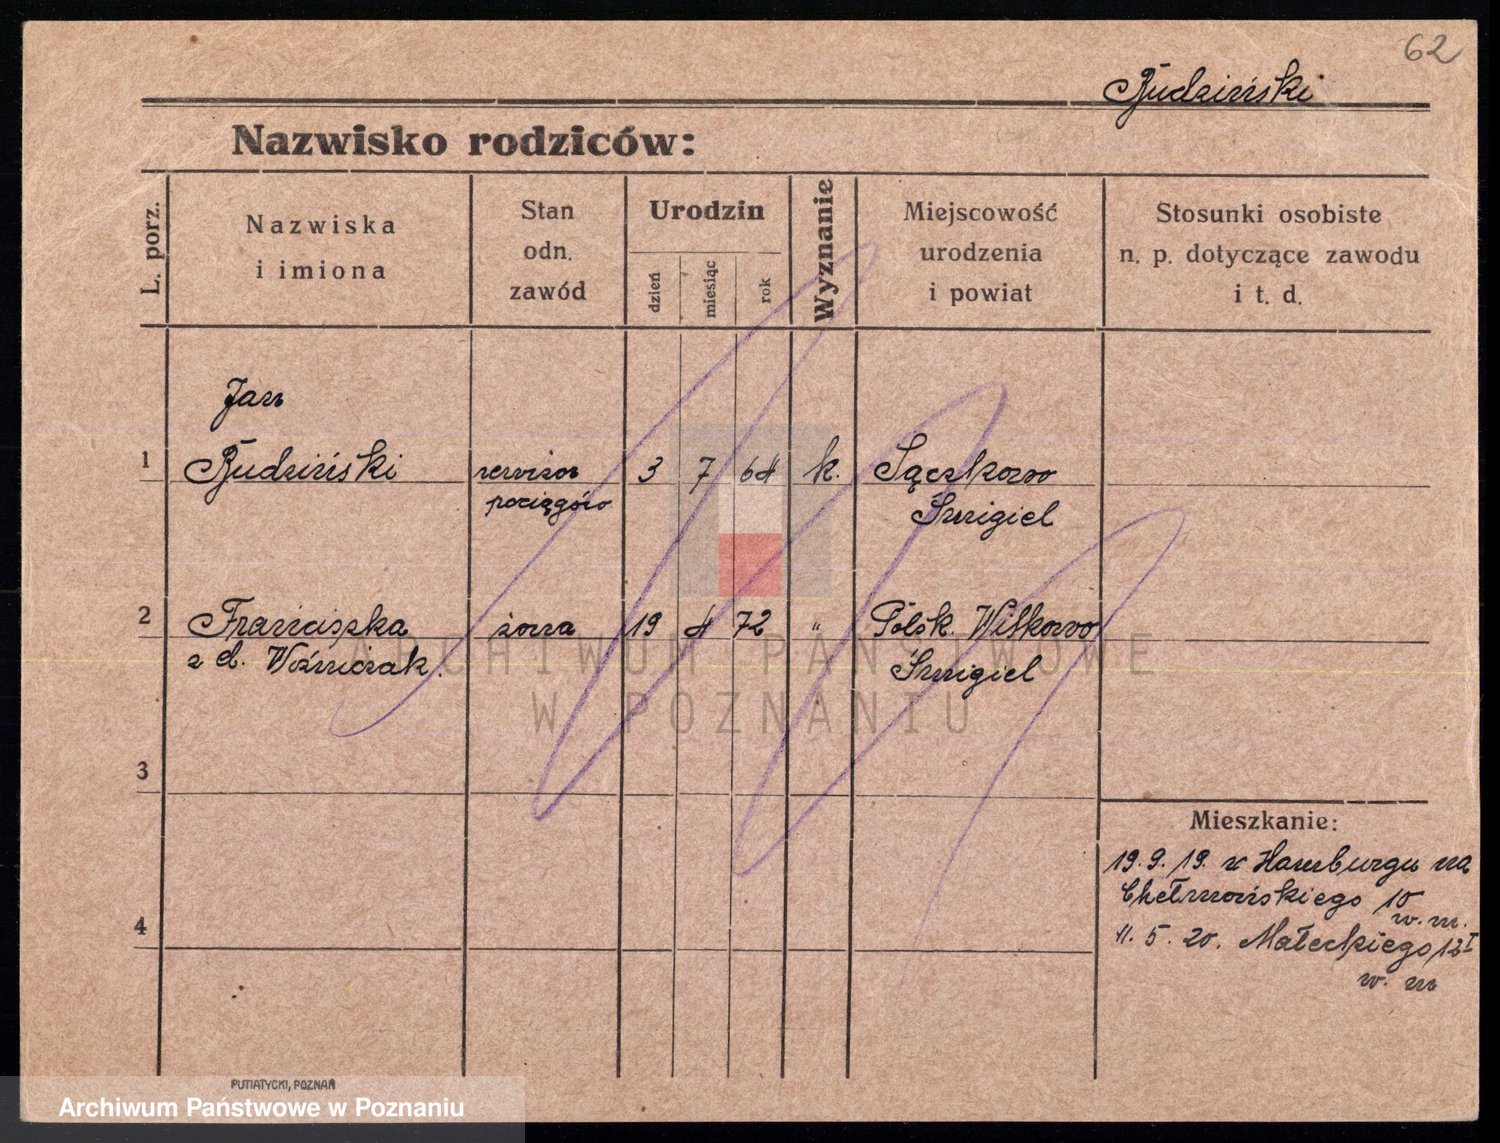 62
Rudziński
Nazwisko rodziców:
L. porz.
Nazwiska
i imiona
Stan
odn.
zawód
Urodzin
dzień
miesiąc
rok
Wyznanie
Miejscowość
urodzenia
i powiat
Stosunki osobiste
n. p. dotyczące zawodu
i t. d.
Jan
1 Rudziński rewizor 3 7 64 k. Sączkowo
pociągów Śmigiel
2 Franciszka żona 19 4 72 " Polsk. Wilkowo
z d. Woźniczak. Śmigiel
3
4
Mieszkanie:
19.9.19. z Hamburgu na
Chełmońskiego 10
w. m.
11. 5. 20. Małeckiego 12 I
w. m
ARCHIWUM PAŃSTWOWE
W POZNANIU
PUTIATYCKI, POZNAŃ
Archiwum Państwowe w Poznaniu